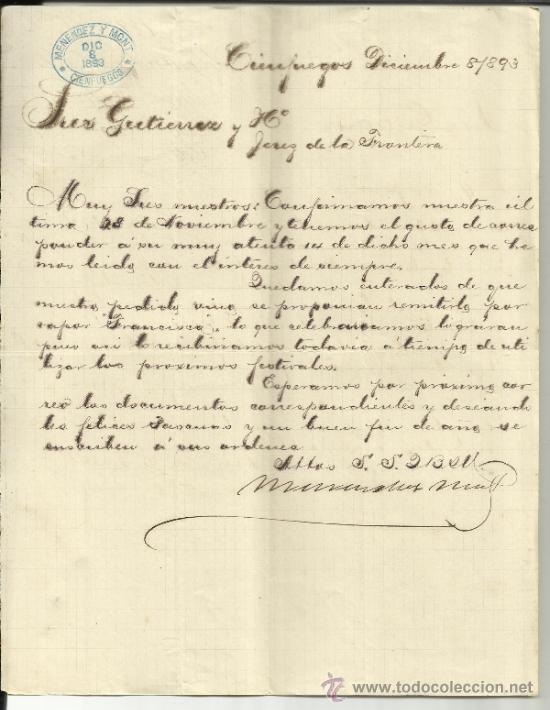 MENENDEZ Y MONT
DIC
8
1893
CIENFUEGOS
Cienfuegos Diciembre 8/893
Sres Gutierrez y Hº
Jerez de la Frontera
Muy Sres nuestros: Confirmamos nuestra úl
tima, 28 de Noviembre y tenemos el gusto de corres
ponder á su muy atenta 14 de dicho mes que he
mos leido con el interes de siempre.
Quedamos enterados de que
nuestro pedido vino se proponian remitirlo por
vapor "Francisca", lo que celebrariamos lograran
pues asi lo recibiriamos todavia á tiempo de uti
lizar los proximos festivales.
Esperamos por próximo cor
reo los documentos correspondientes y deseando
les felices Pascuas y un buen fin de año, se
suscriben á sus ordenes
Attos S. S. Q B S M
Menendez Mont
www.todocoleccion.net